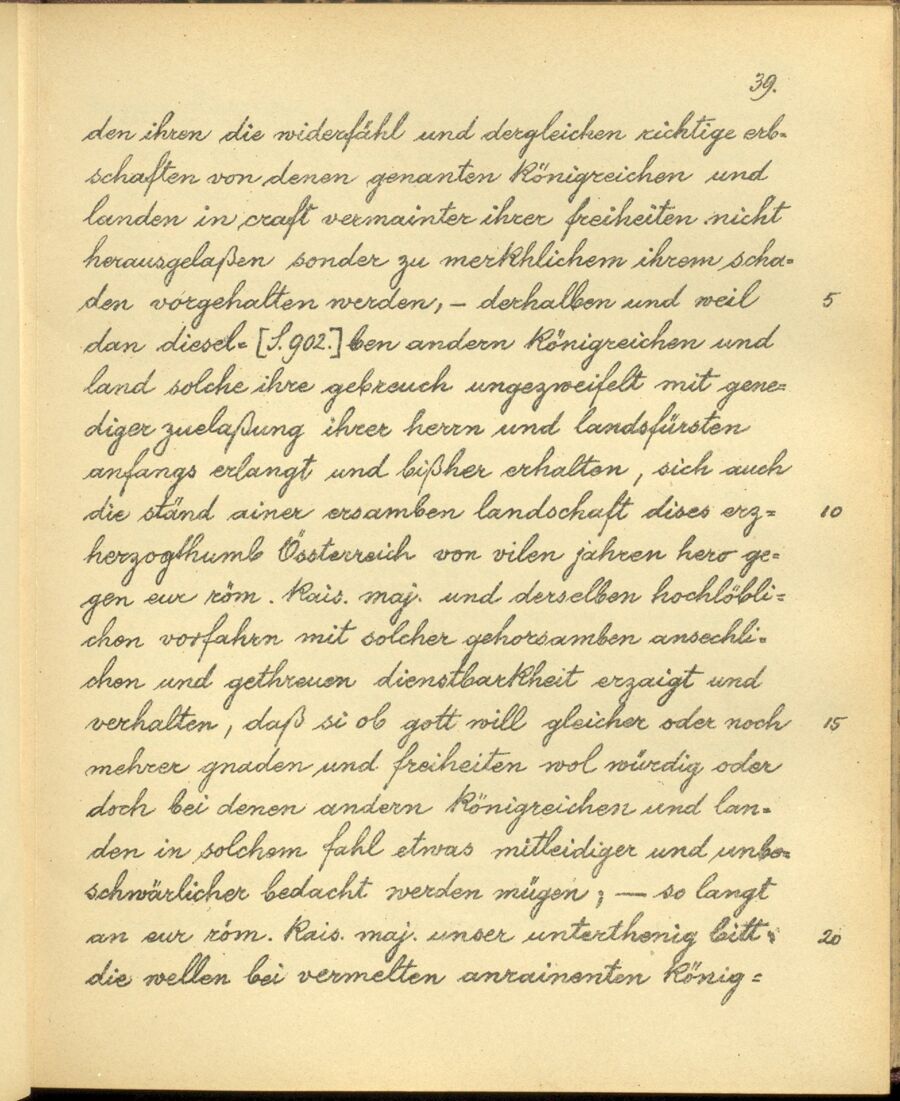 39.
den ihren die widerfähl und dergleichen richtige erb=
schaften von denen genanten Königreichen und
landen in craft vermainter ihrer freiheiten nicht
herausgelaßen sonder zu merkhlichem ihrem scha=
den vorgehalten werden, – derhalben und weil 5
dan diesel= [S. 902.] ben andern Königreichen und
land solche ihre gebreuch ungezweifelt mit gene=
diger zuelaßung ihrer herrn und landsfürsten
anfangs erlangt und bißher erhalten, sich auch
die ständ ainer ersamben landschaft dises erz= 10
herzogthumb Össterreich von vilen jahren hero ge=
gen eur röm. Kais. maj. und derselben hochlöbli=
chen vorfahrn mit solcher gehorsamben ansechli=
chen und gethreuen dienstbarkheit erzaigt und
verhalten, daß si ob gott will gleicher oder noch 15
mehrer gnaden und freiheiten wol würdig oder
doch bei denen andern Königreichen und lan=
den in solchem fahl etwas mitleidiger und unbe=
schwärlicher bedacht werden mügen; — so langt
an eur röm. Kais. maj. unser unterthenig bitt, 20
die wellen bei vermelten anrainenten König=